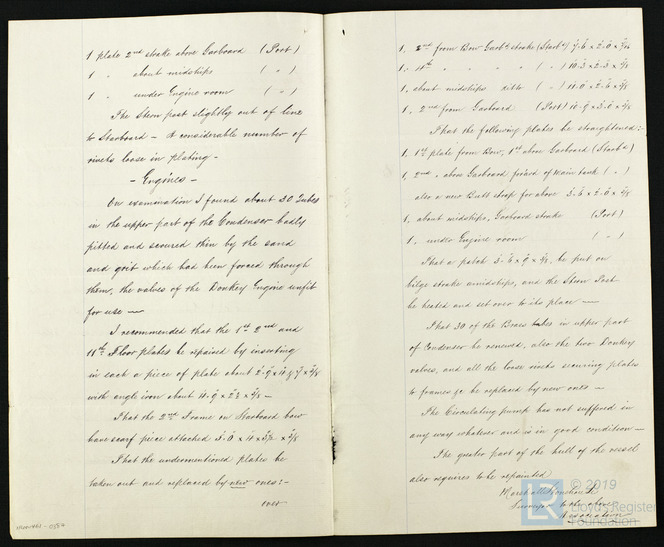 1 plate 2nd strake above Garboard (Port)
1 " about midships ( " )
1 " under Engine room ( " )
The Stern post slightly out of line
to Starboard - A considerable number of
rivets loose in plating -
- Engines -
On examination I found about 30 Tubes
in the upper part of the Condenser badly
pitted and scoured thin by the sand
and grit which had been forced through
them, the valves of the Donkey Engine unfit
for use —
I recommended that the 1st 2nd and
11th Floor plates be repaired by inserting
in each a piece of plate about
with angle iron about
That the 2nd Frame on Starboard bow
have scarf piece attached
That the undermentioned plates be
taken out and replaced by new ones:-
over
1, 2nd from Bow Garbd strake (Starbd)
1, 4th " " " ( " )
1, about midships ditto ( " )
1, 2nd from Garboard (Port)
That the following plates be straightened:-
1, 1st plate from Bow, 1st above Garboard (Starbd)
1, 2nd " above Garboard forward of Main tank ( " )
also a new Butt strap for above
1, about midships, Garboard strake (Port)
1, under Engine room ( " )
That a patch be put on
bilge strake amidships, and the Stern Post
be heated and set over to its place —
That 30 of the Brass tubes in upper part
of Condenser be renewed, also the two Donkey
valves, and all the loose rivets securing plates
to frames be replaced by new ones —
The Circulating pump has not suffered in
any way whatever and is in good condition -
The greater part of the hull of the vessel
also requires to be repainted
Surveyor to the above
Association
© 2019
Lloyd's Register
Foundation